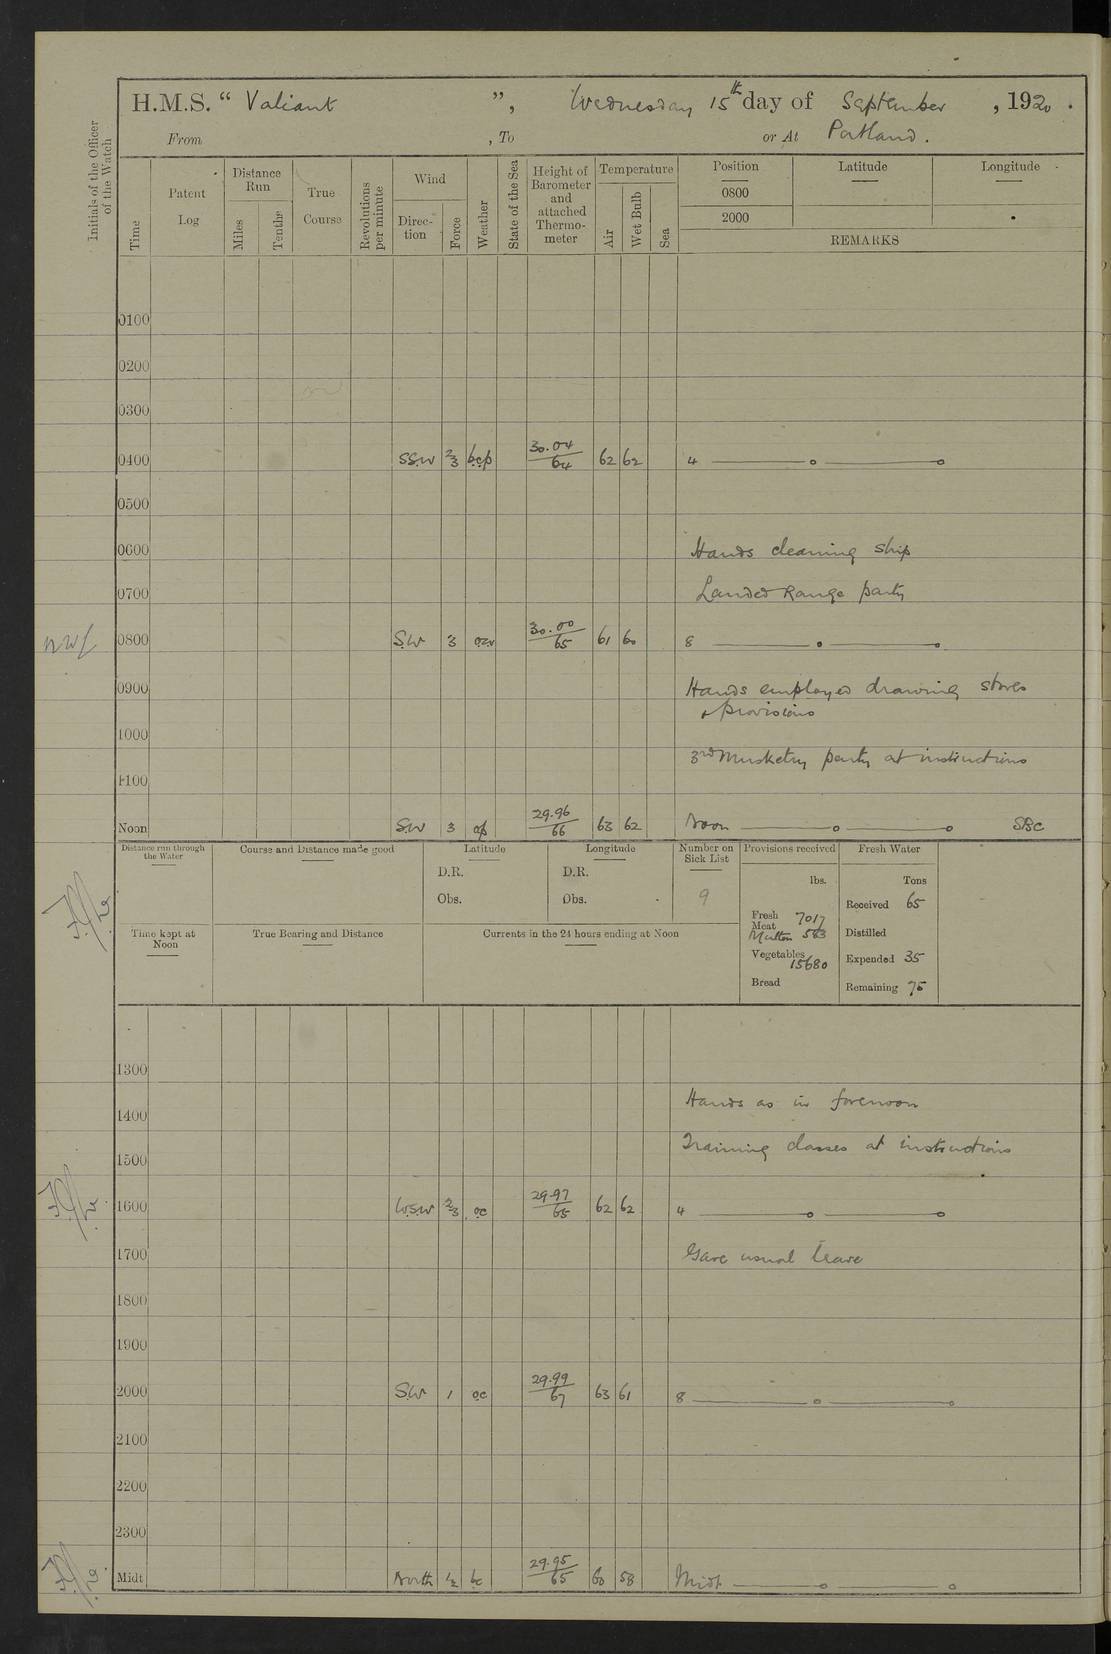 H.M.S. “ Valiant ”, Wednesday 15th day of September , 1920 .
From , To or At Portland .
Initials of the Officer of the Watch
Time
Patent Log
Distance Run
Miles
Tenths
True Course
Revolutions per minute
Wind
Direction
Force
Weather
State of the Sea
Height of Barometer and attached Thermometer
Temperature
Air
Wet Bulb
Sea
Position
0800
2000
Latitude
Longitude
REMARKS
0100
0200
0300
0400 SSW 2/3 bcp 30.04/64 62 62 4
0500
0600 Hands cleaning ship
0700 Landed Range party
0800 SW 3 30.00/65 61 60 8
0900 Hands employed drawing stores
& provisions
1000
3rd Musketry party at instructions
1100
Noon SW 3 op 29.96/66 63 62 Noon SBC
Distance run through the Water
Course and Distance made good
Latitude
D.R.
Obs.
Longitude
D.R.
Obs.
Number on Sick List
9
Provisions received
lbs.
Fresh Meat 7017
Mutton 583
Vegetables 15680
Bread
Fresh Water
Tons
Received 65
Distilled
Expended 35
Remaining 75
Time kept at Noon
True Bearing and Distance
Currents in the 24 hours ending at Noon
1300
Hands as in forenoon
1400
Training classes at instructions
1500
1600 WSW 2/3 oc 29.97/65 62 62 4
1700 Gave usual leave
1800
1900
2000 SW 1 oc 29.99/67 63 61 8
2100
2200
2300
Midt North 1/2 bc 29.95/65 60 58 Midt